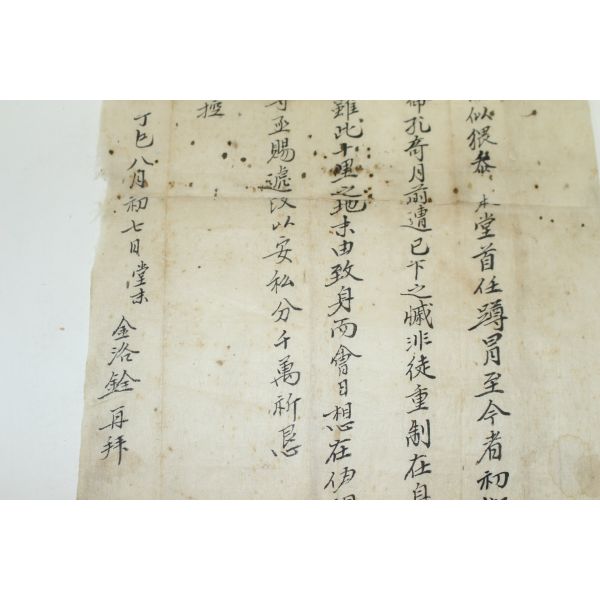 似猥忝 本堂首任蹲冒至今者初
孔奇月前遭已下之慽非徒重制在身
雖此十里之地末由致身而會日想在伊
亟賜遞改以安私分千萬祈恳
極
丁巳八月初七日堂末 金洛銓 再拜